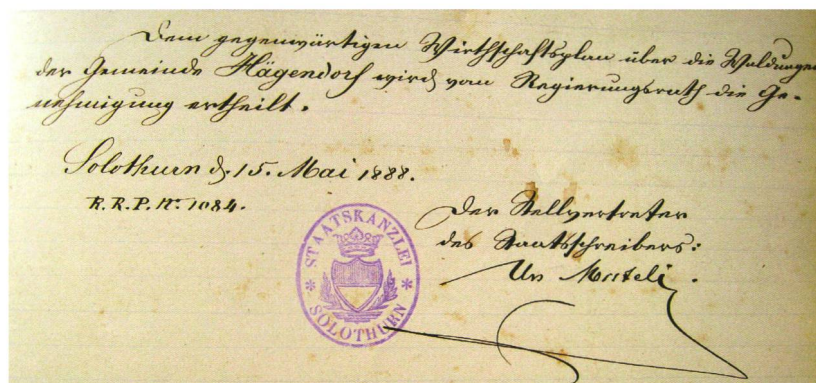 Dem gegenwärtigen Wirthschaftsplan über die Waldungen
der Gemeinde Hägendorf wird vom Regierungsrath die Ge-
nehmigung ertheilt.
Solothurn d. 15. Mai 1888.
R.R.P. Nr. 1084.
Der Stellvertreter
des Staatsschreibers:
STAATSKANZLEI
* SOLOTHURN *